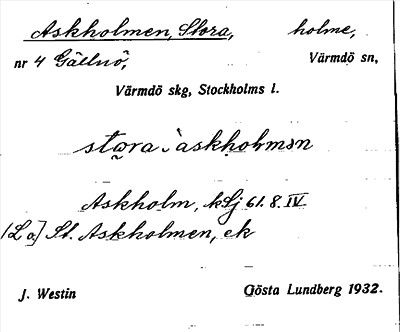 Askholmen, Stora, holme,
nr 4 Gällnö, Värmdö sn,
Värmdö skg, Stockholms l.
stora `askholmən
Askholm, kSj 61. 8. IV
[La] St. Askholmen, ek
J. Westin Gösta Lundberg 1932.